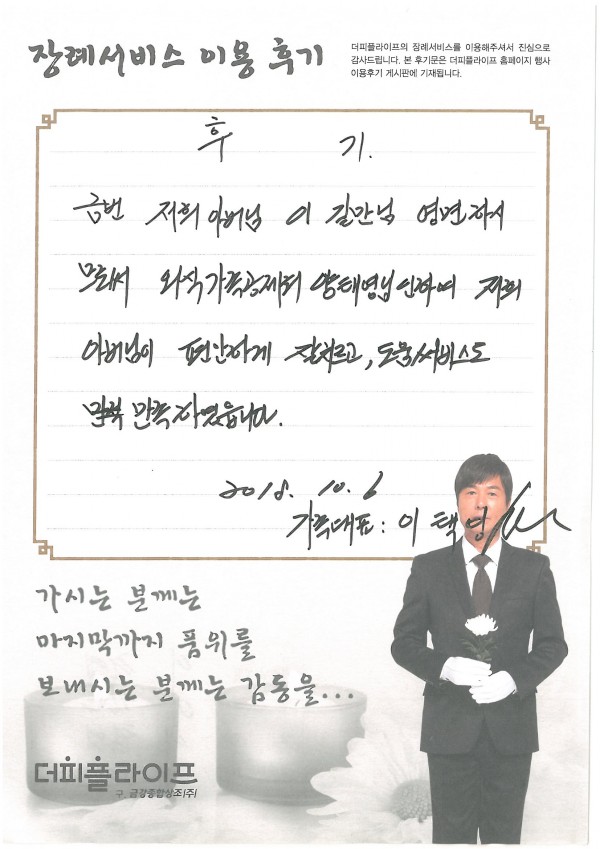 장례서비스 이용 후기
더피플라이프의 장례서비스를 이용해주셔서 진심으로
감사드립니다. 본 후기문은 더피플라이프 홈페이지 행사
이용후기 게시판에 기재됩니다.
후 기.
금번 저희 아버님 이 길만님 영면하시
므로서 외식가족공제회 양태영님 인하여 저희
아버님이 편안하게 잘치르고, 도움서비스도
만족하였읍니다.
2018. 10. 6
가족대표 : 이택영
가시는 분께는
마지막까지 품위를
보내시는 분께는 감동을...
더피플라이프
구. 금강종합상조(주)